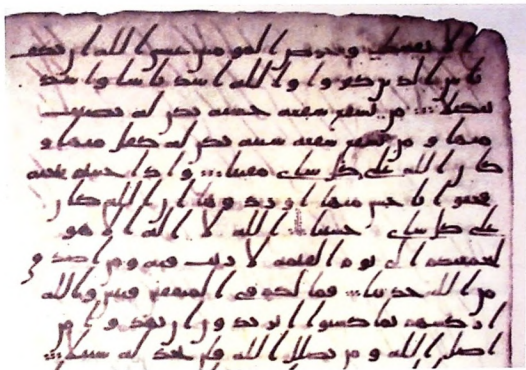 الا نفسك وحرض المومنين عسى الله ان يكف
باس الذين كفروا والله اشد باسا واشد
تنكيلا من يشفع شفعه حسنه يكن له نصيب
منها و من يشفع شفعه سيئه يكن له كفل منها و
كان الله على كل شاى مقيتا واذا حييتم بتحيه
فحيوا باحسن منها او ردوها ان الله كان
على كل شاى حسيبا الله لا اله الا هو
ليجمعنكم الى يوم القيمه لا ريب فيه ومن اصدق
من الله حديثا فما لكم فى المنفقين فيتين والله
اركسهم بما كسبوا اتريدون ان تهدوا من
اضل الله و من يضلل الله فلن تجد له سبيلا